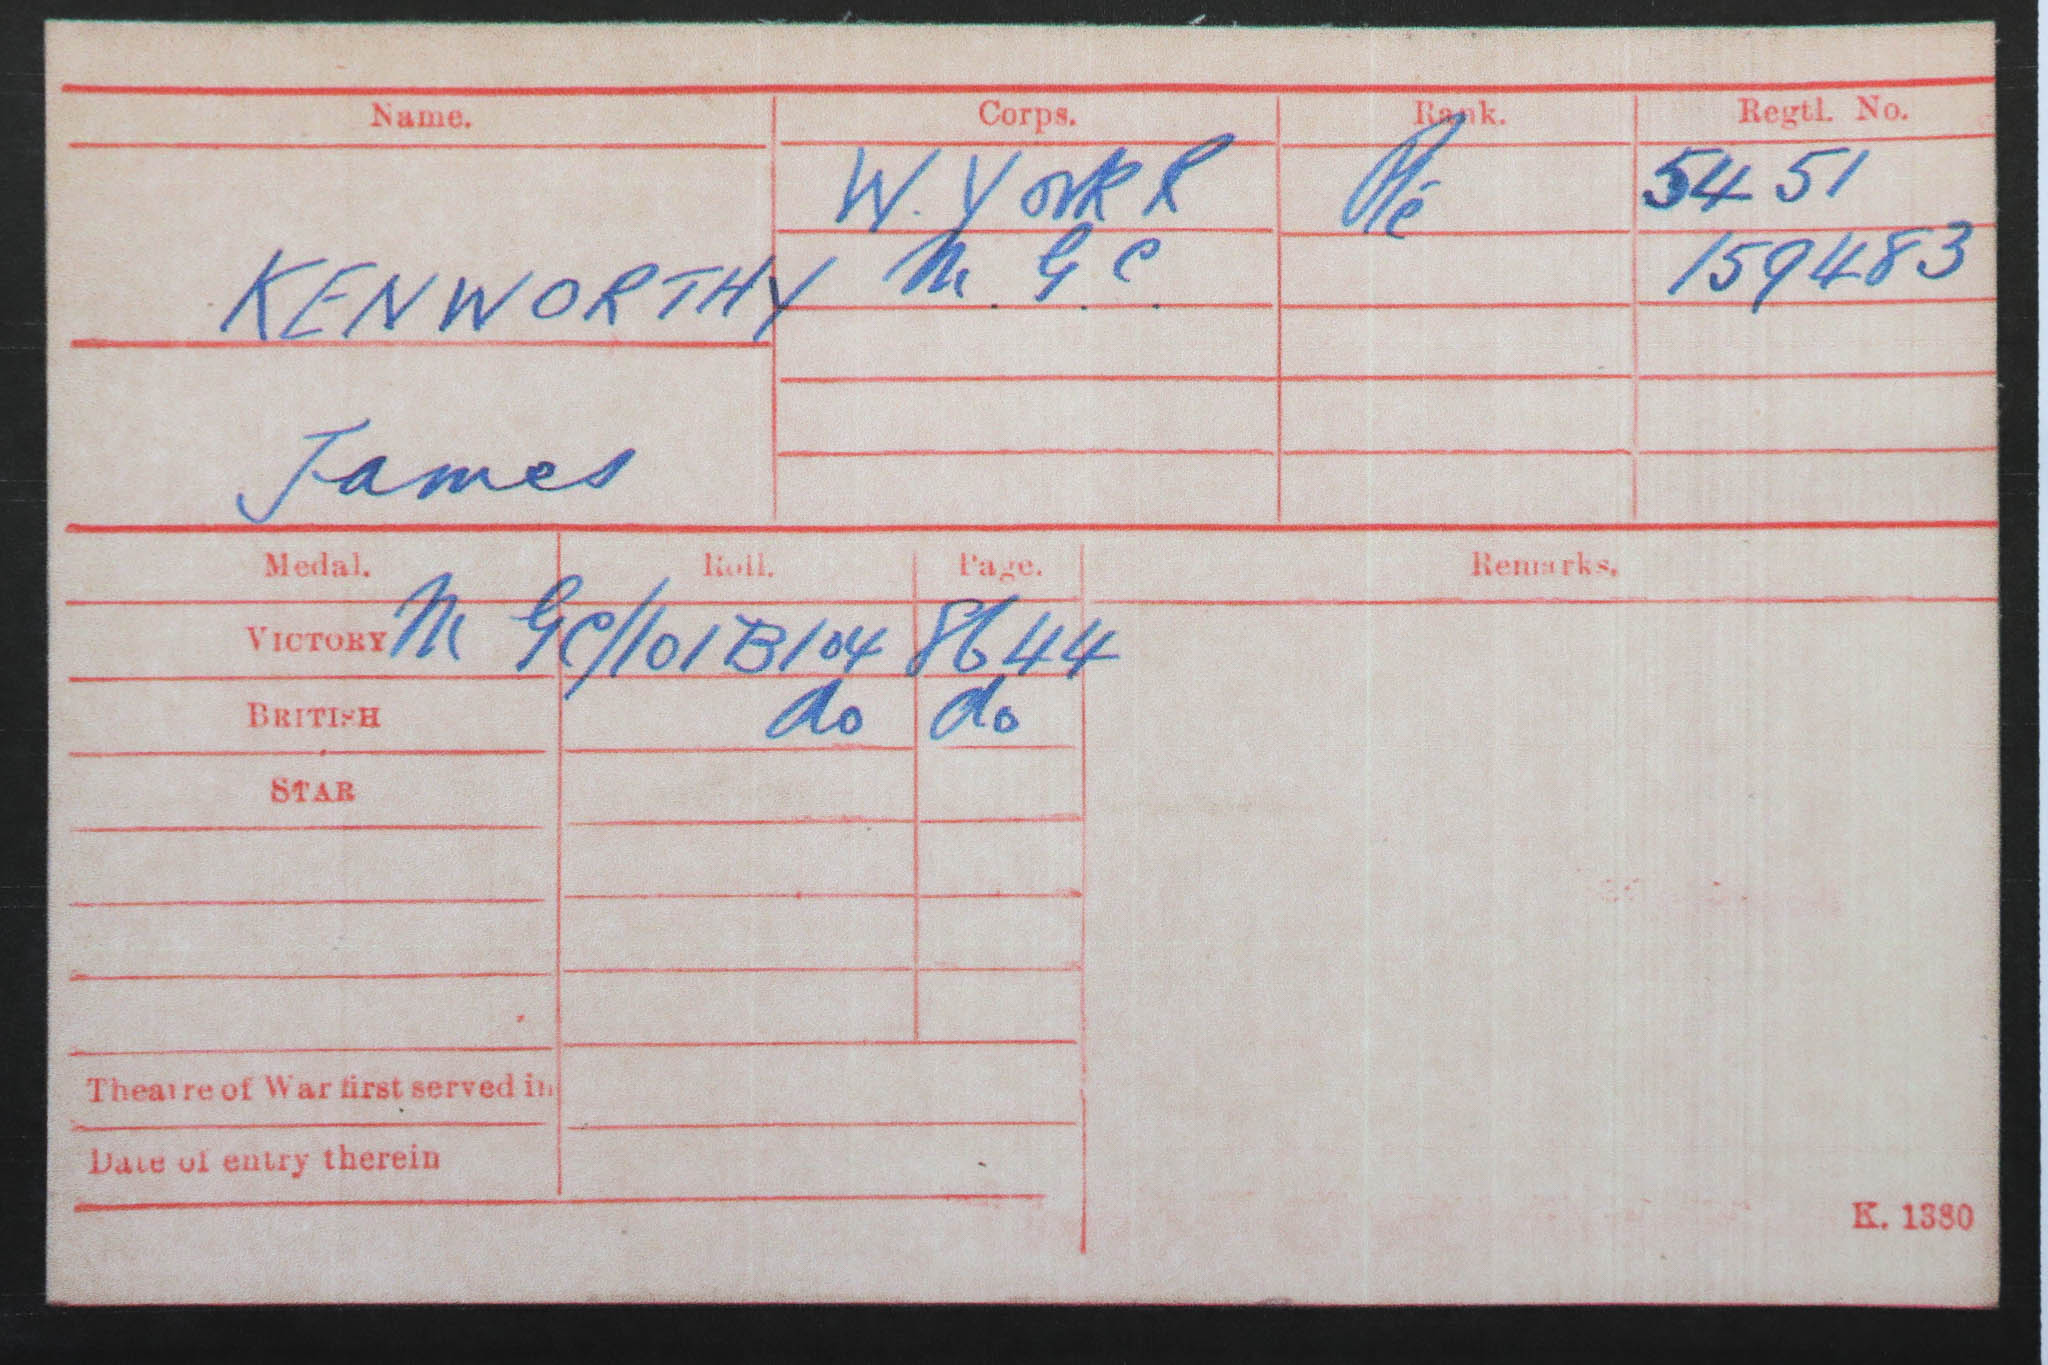 Name. Corps. Rank. Regtl. No.
W. YORK R Pte 5451
KENWORTHY M. G. C. 159483
James
Medal. Roll. Page. Remarks.
VICTORY M GC/101B104 8644
BRITISH do do
STAR
Theatre of War first served in
Date of entry therein
K. 1380